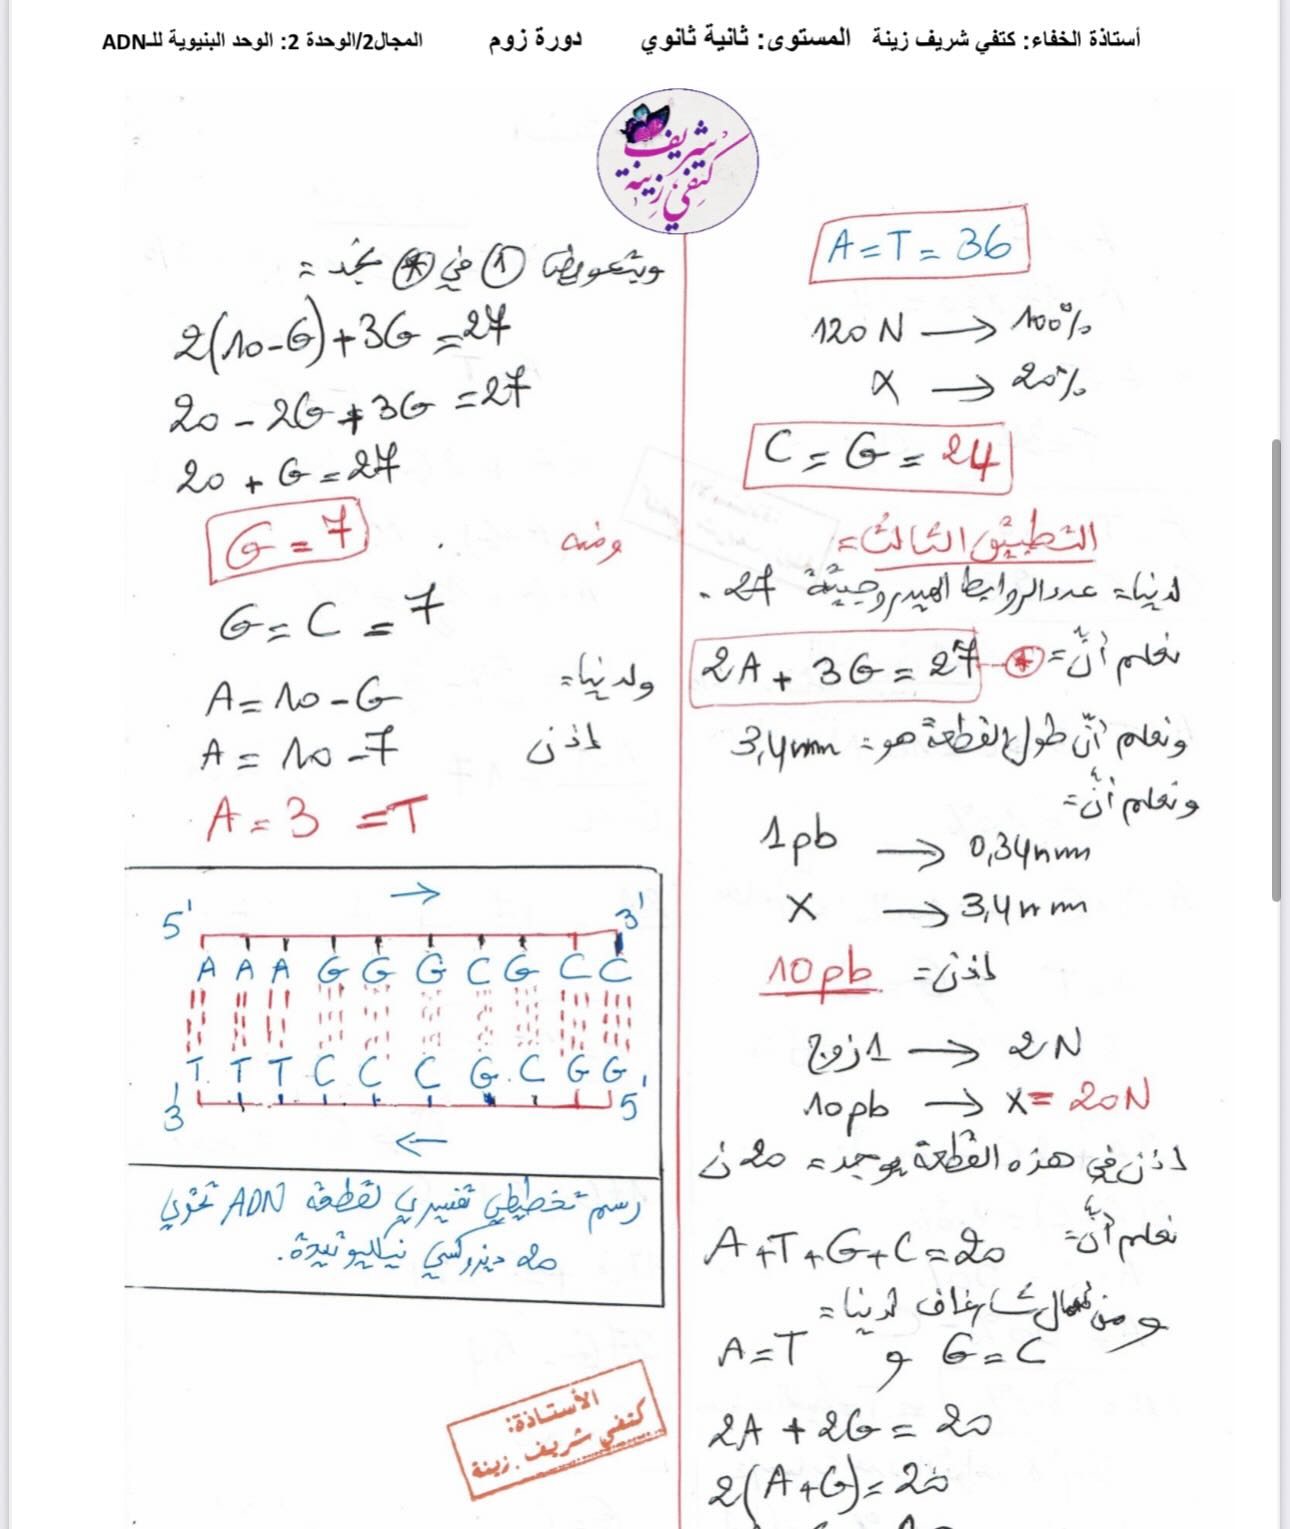 أستاذة الخفاء: كتفي شريف زينة المستوى: ثانية ثانوي دورة زوم المجال2/الوحدة 2: الوحد البنيوية للـADN
شريف
كتفي زينة
A=T= 36
120 N → 100%
X → 20%
C = G = 24
التطبيق الثالث=
لدينا= عدد الروابط الهيدروجينية 27.
نعلم أنّ= 2A + 3G = 27 *
ونعلم أنّ طول القطعة هو= 3,4nm
ونعلم أنّ=
1pb → 0,34nm
X → 3,4nm
اذن= 10pb
1 زوج → 2N
10pb → X= 20N
اذن في هذه القطعة يوجد= 20 ن
نعلم أنّ= A+T+G+C=20
ومن شارغاف لدينا=
A=T و G=C
2A + 2G = 20
2(A+G)=20
وبتعويض 1 في * نجد=
2(10-G)+3G=27
20 - 2G + 3G = 27
20 + G = 27
ومنه G = 7
G = C = 7
ولدينا= A=10-G
اذن A= 10-7
A = 3 =T
→
5' 3'
A A A G G G C G C C
T T T C C C G C G G
3' 5'
←
رسم تخطيطي تفسيري لقطعة ADN تحوي
20 ديزوكسي نيكليوتيدة.
الأستاذة:
كتفي شريف زينة